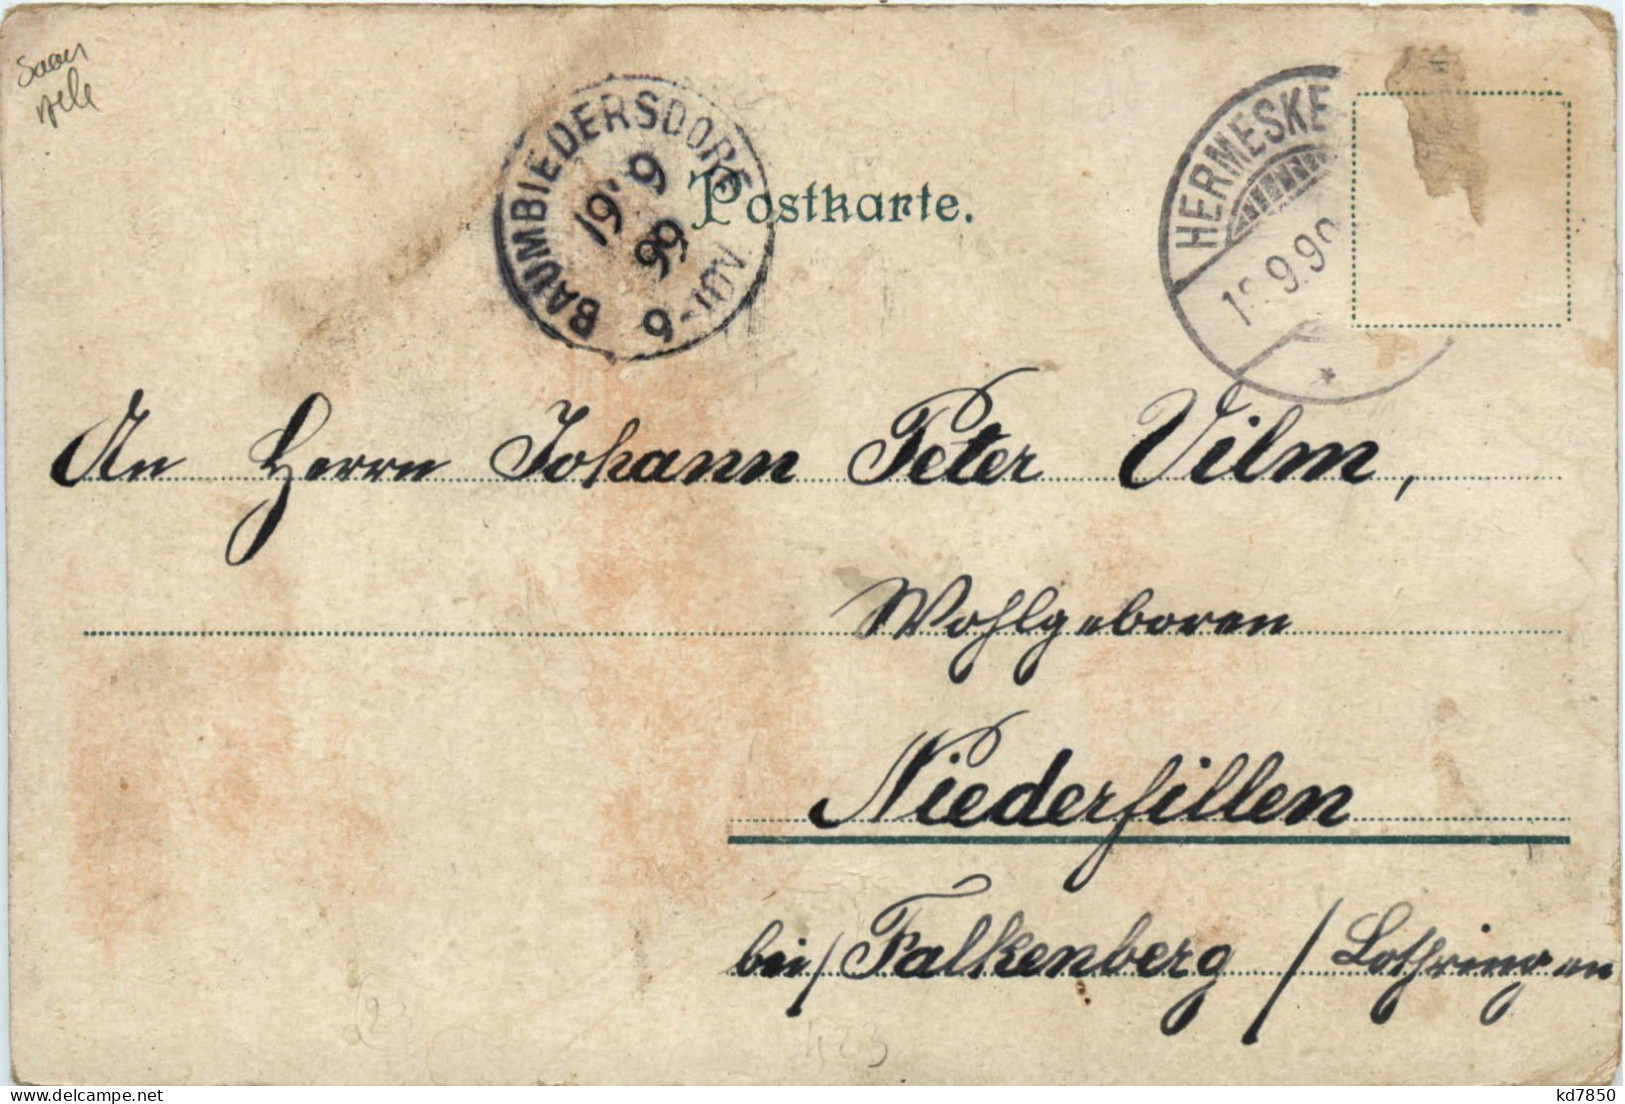 BAUMBIEDERSDORF
19. 9
99
6-10V.
Postkarte.
HERMESKE
9.9
An Herrn Johann Peter Vilm,
Wohlgeboren
Niederfillen
bei / Falkenberg / Lothringen
kd7850